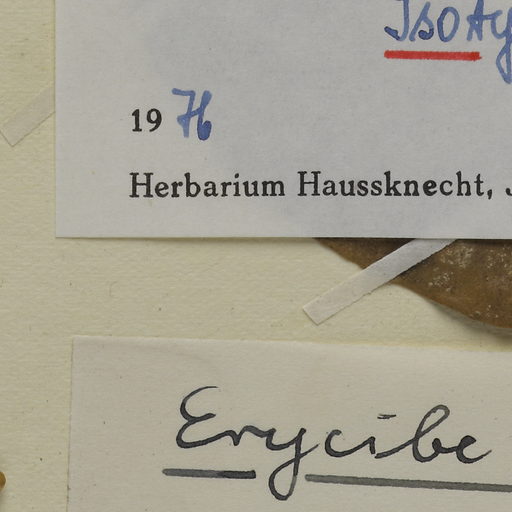 Isoty
1976
Herbarium Haussknecht, J
Erycibe